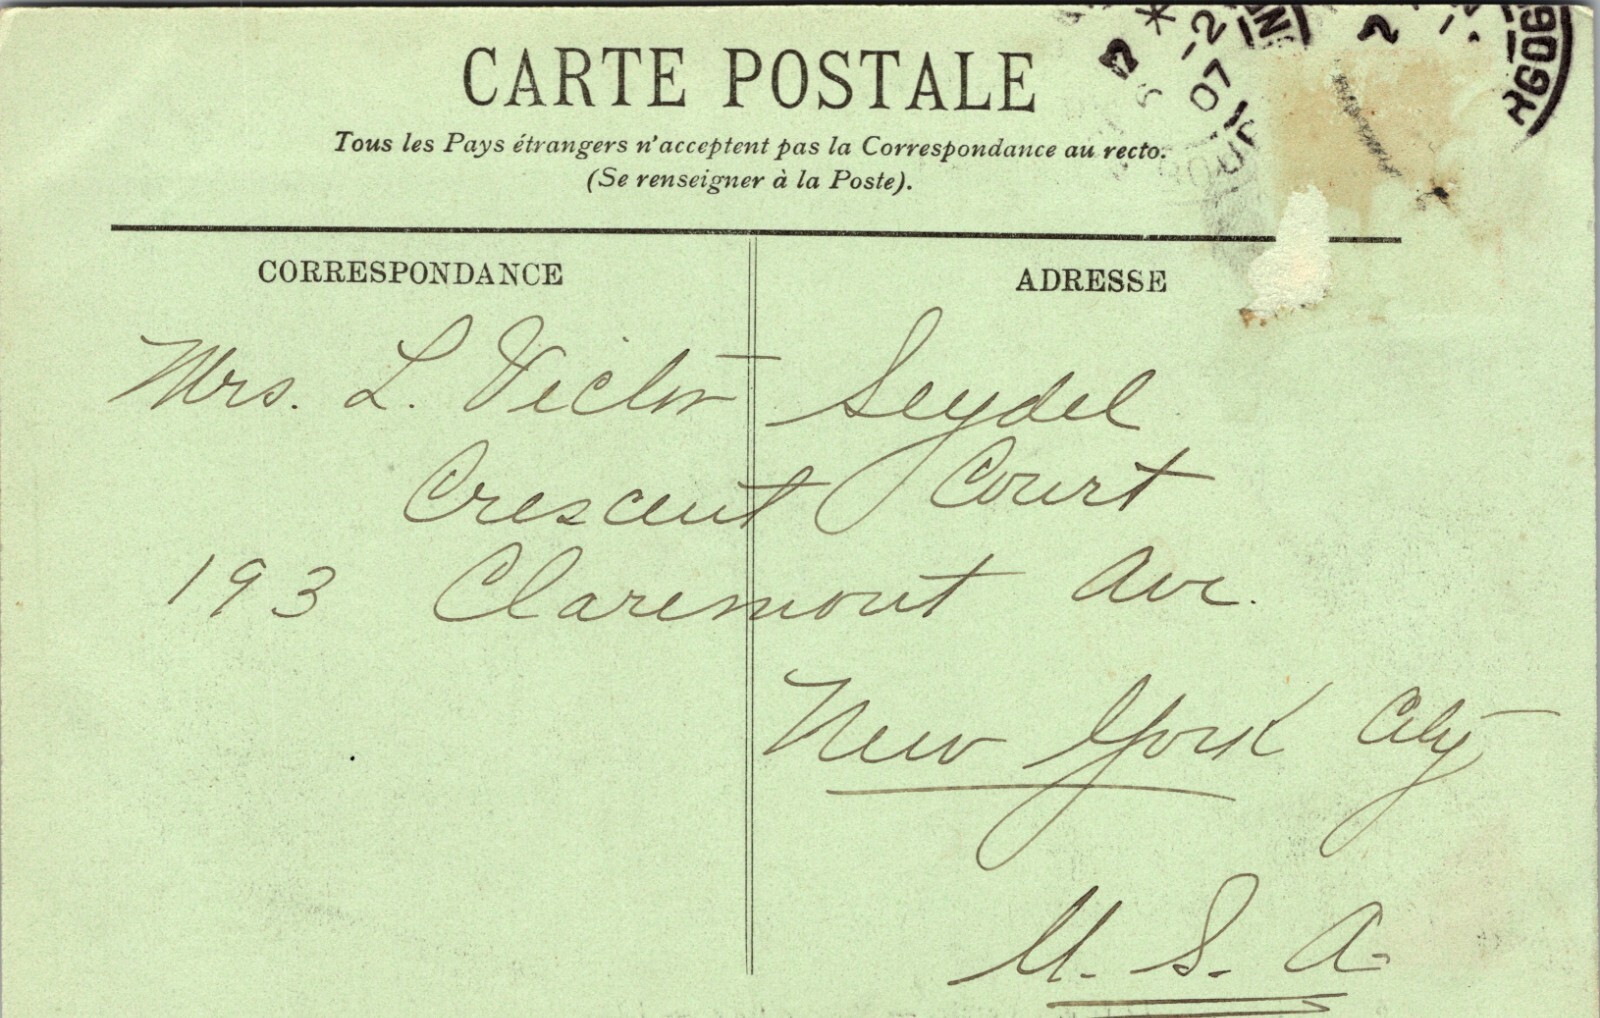 CARTE POSTALE
Tous les Pays étrangers n'acceptent pas la Correspondance au recto.
(Se renseigner à la Poste).
CORRESPONDANCE
ADRESSE
Mrs. L. Victor Seydel
Crescent Court
193 Claremont Ave.
New York City
U. S. A.
07